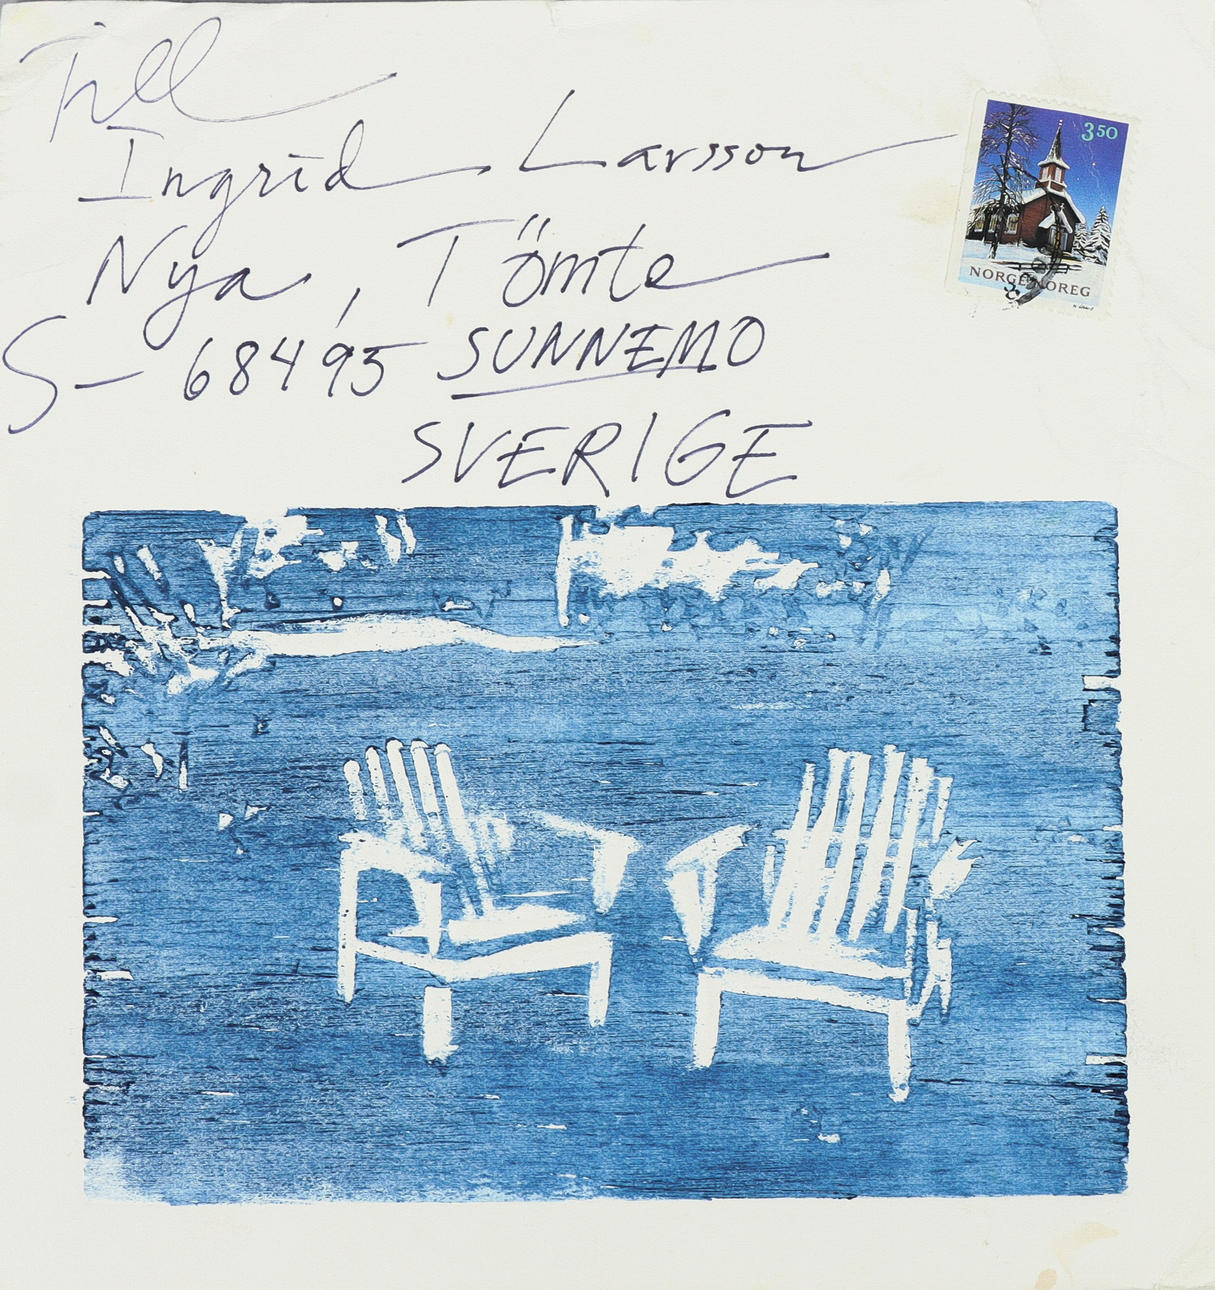 Till
Ingrid Larsson
Nya, Tömte
S-68495 SUNNEMO
SVERIGE
350
NORGE NOREG